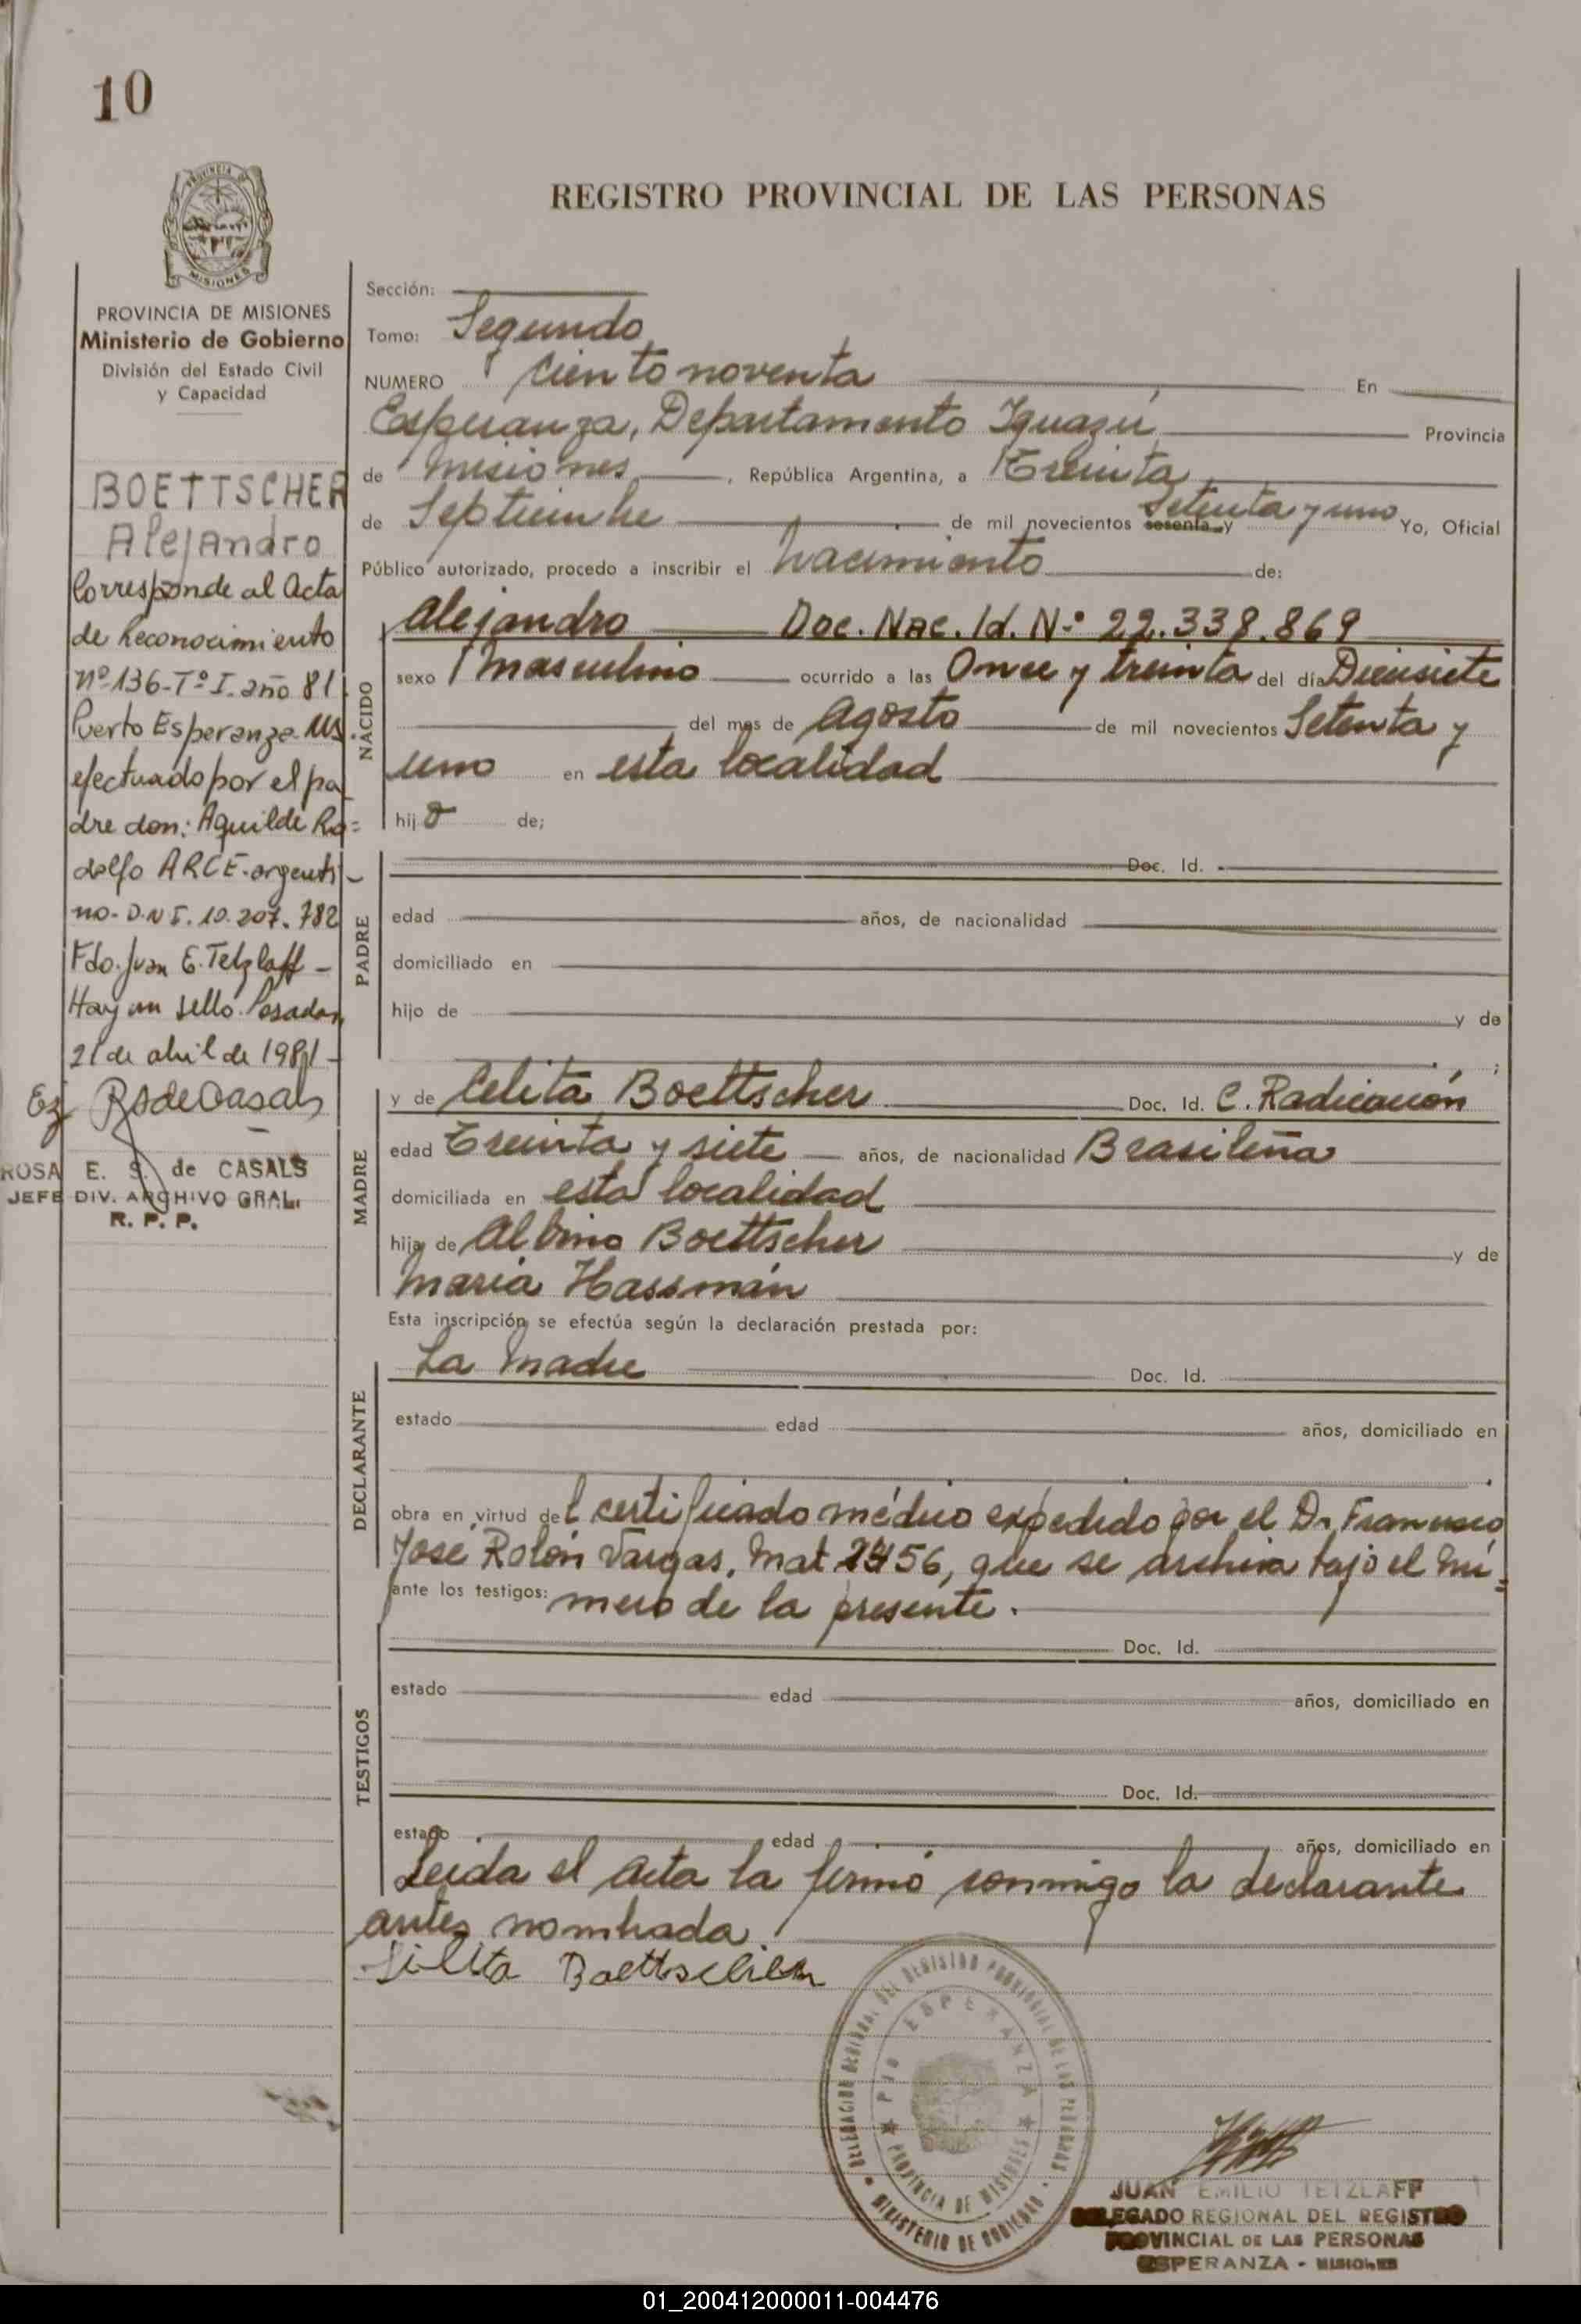 10
PROVINCIA DE
MISIONES
REGISTRO PROVINCIAL DE LAS PERSONAS
PROVINCIA DE MISIONES
Ministerio de Gobierno
División del Estado Civil
y Capacidad
BOETTSCHER
Alejandro
Corresponde al Acta
de Reconocimiento
nº 136-Tº I. año 81
Puerto Esperanza Ms
efectuado por el pa
dre don: Aquilde Ro=
dolfo ARCE-argenti-
no- D.N I. 10.207.782
Fdo. Juan E. Tetzlaff -
Hay un sello. Posadas,
21 de abril de 1981-
ROSA E. S. de CASALS
JEFE DIV. ARCHIVO GRAL.
R. P. P.
Sección:
Tomo: Segundo
NUMERO Ciento noventa En
Esperanza, Departamento Iguazú Provincia
de Misiones, República Argentina, a Treinta
de Septiembre de mil novecientos sesenta y Setenta y uno Yo, Oficial
Público autorizado, procedo a inscribir el Nacimiento de:
NACIDO
Alejandro Doc. Nac. Id. Nº 22.338.869
sexo Masculino ocurrido a las Once y treinta del día Diecisiete
del mes de Agosto de mil novecientos Setenta y
uno en esta localidad
hijo de;
PADRE
Doc. Id.
edad años, de nacionalidad
domiciliado en
hijo de y de
;
MADRE
y de Celita Boettscher Doc. Id. C. Radicación
edad Treinta y siete años, de nacionalidad Brasileña
domiciliada en esta localidad
hija de Albino Boettscher y de
María Hassmán
Esta inscripción se efectúa según la declaración prestada por:
DECLARANTE
La Madre Doc. Id.
estado edad años, domiciliado en
obra en virtud del certificado médico expedido por el Dr. Francisco
José Rolón Vargas, Mat 56, que se archiva bajo el Nú=
ante los testigos: mero de la presente.
TESTIGOS
Doc. Id.
estado edad años, domiciliado en
Doc. Id.
estado edad años, domiciliado en
Leida el Acta la firmó conmigo la declarante
antes nombrada
Boettscher
DELEGACION REGIONAL DEL REGISTRO PROVINCIAL DE LAS PERSONAS
PTO ESPERANZA
PROVINCIA DE MISIONES
MINISTERIO DE GOBIERNO
JUAN EMILIO TETZLAFF
DELEGADO REGIONAL DEL REGISTRO
PROVINCIAL DE LAS PERSONAS
ESPERANZA - MISIONES
01_200412000011-004476